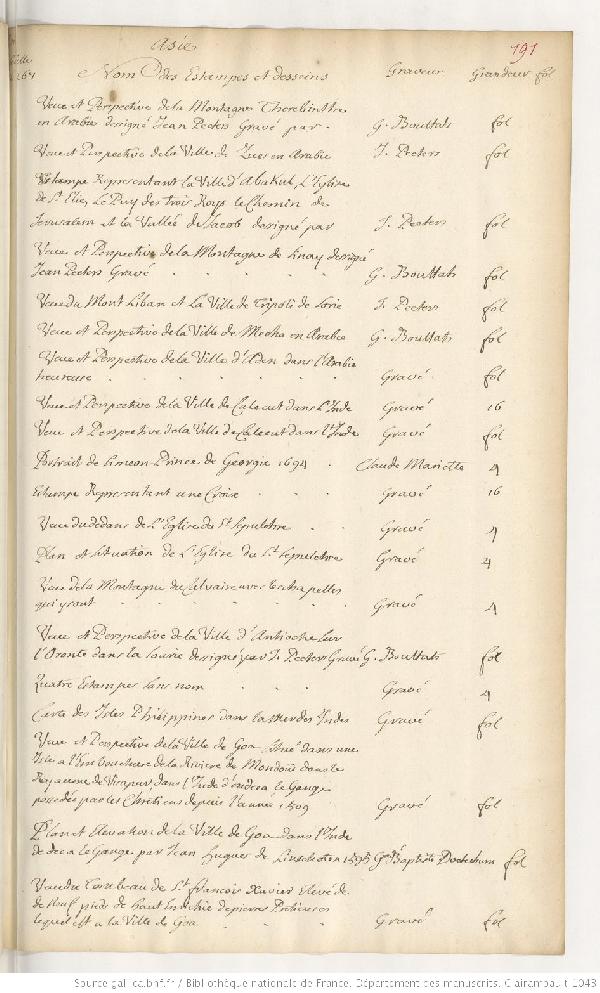 Asie
191
Nom des Estampes et desseins Graveur Grandeur fol
Veue et Perspective de la Montagne Therebinthe
en Arabie designé Jean Peeters Gravé par . G. Bouttats fol
Veue et Perspective de la Ville de Zues en Arabie J. Peeters fol
Estampe Representant la Ville d'Abakuk, L'Eglise
de St Elie, Le Puy des trois Roys le Chemin de
Jerusalem et la Vallée de Jacob designé par J. Peeters fol
Veue et Perspective de la Montagne de Sinay designé
Jean Peeters Gravé . . . . G. Bouttats fol
Veue du Mont Liban et La Ville de Tripoli de Sorie J. Peeters fol
Veue et Perspective de la Ville de Mecha en Arabie G. Bouttats fol
Veue et Perspective de la Ville d'Aden dans l'Arabie
heureuse . . . . . . Gravé . fol
Veue et Perspective de la Ville de Calecut dans L'Inde Gravé 16
Veue et Perspective de la Ville de Calecut dans l'Inde Gravé fol
Portrait de Simeon Prince de Georgie 1694 . Claude Mariette 4
Estampe Representant une Croix . . . Gravé 16
Veue du dedans de L'Eglise du St Sepulchre . Gravé 4
Plan et Situation de L'Eglise du St Sepulchre Gravé 4
Veue de la Montagne du Calvaire avec les chapelles
qui y sont . . . . . Gravé 4
Veue et Perspective de la Ville d'Antioche sur
l'Oronte dans la Sourie designé par J. Peeters Gravé G. Bouttats fol
Quatre Estampes sans nom . . . Gravé 4
Carte des Isles Philippines dans la Mer des Indes Gravé fol
Veue et Perspective de la Ville de Goa, situé dans une
Isle a l'Embouchure de la Riviere de Mondoüi dans le
Royaume de Visapur, dans l'Inde d'en deca le Gange
possedée par les Chrêtiens depuis l'année 1509 Gravé fol
Plan et Elevation de la Ville de Goa dans l'Inde
de deca le Gange par Jean Hugues de Linschoten 1595 Baptiste Doetechum fol
Veue du Tombeau de St François Xavier Elevé de
de Neuf pieds de haut Enrichie de pierres Prétieuses
lequel est a la Ville de Goa . . . Gravé fol
Source gallica.bnf.fr / Bibliothèque nationale de France. Département des manuscrits. Clairambault 1043